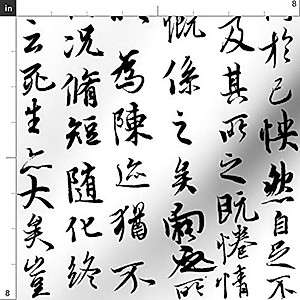 in
8
於己怏然自足不
及其所之既惓情
慨係之矣向之所
為陳迹猶不
況脩短隨化終
云死生亦大矣豈
8